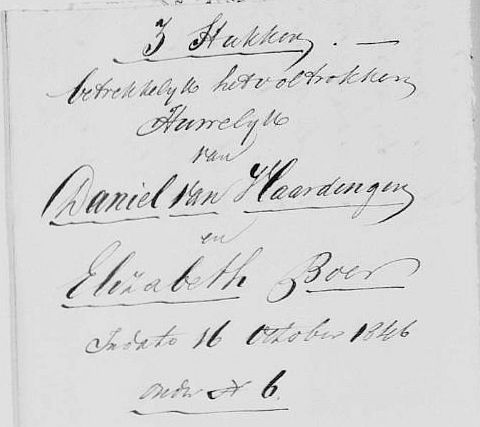 3 Stukken. —
betrekkelyk het voltrokken
Huwelyk
van
Daniel van Haardingen
en
Elizabeth Boer
In dato 16 October 1846
onder N 6.